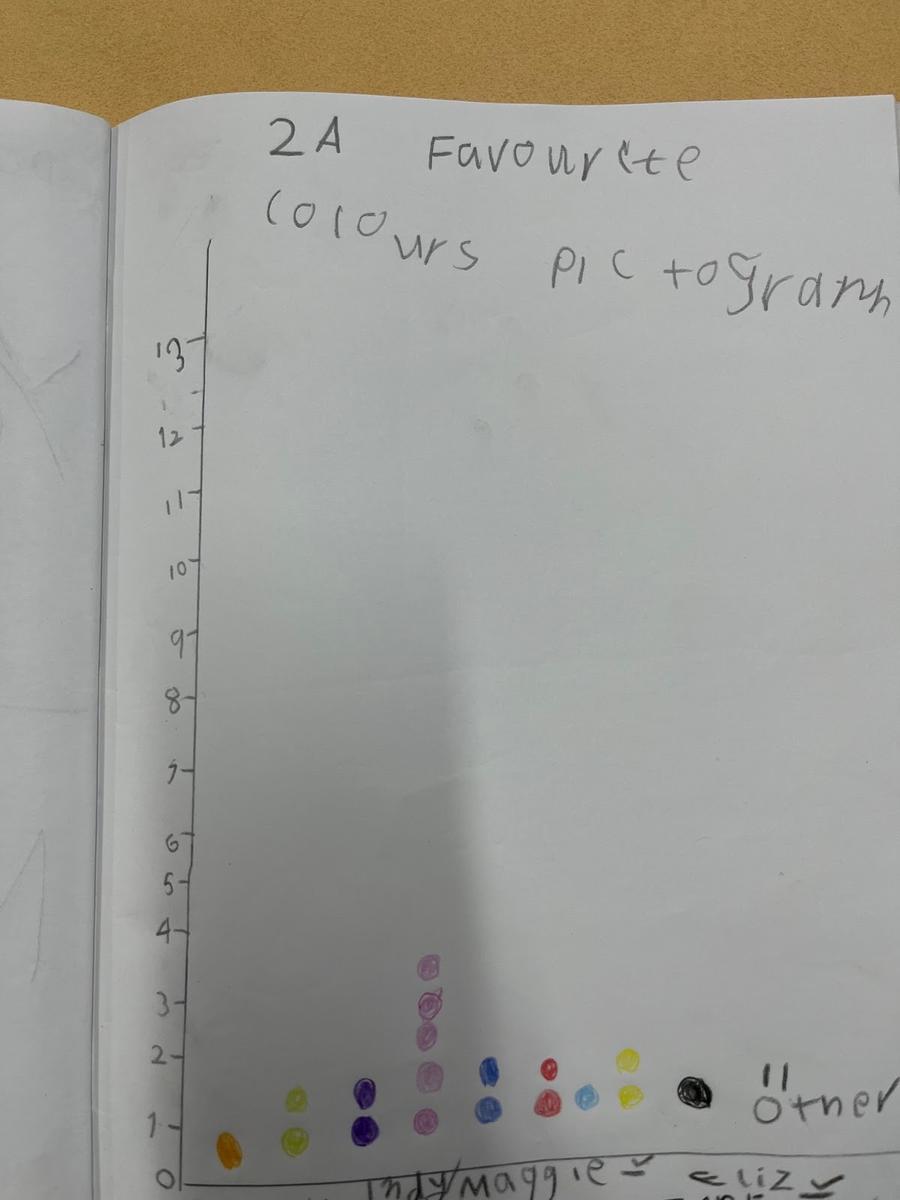 2A Favourite
colours pictograph
13
12
11
10
9
8
7
6
5
4
3
2
1
other
0
Maggie Eliz